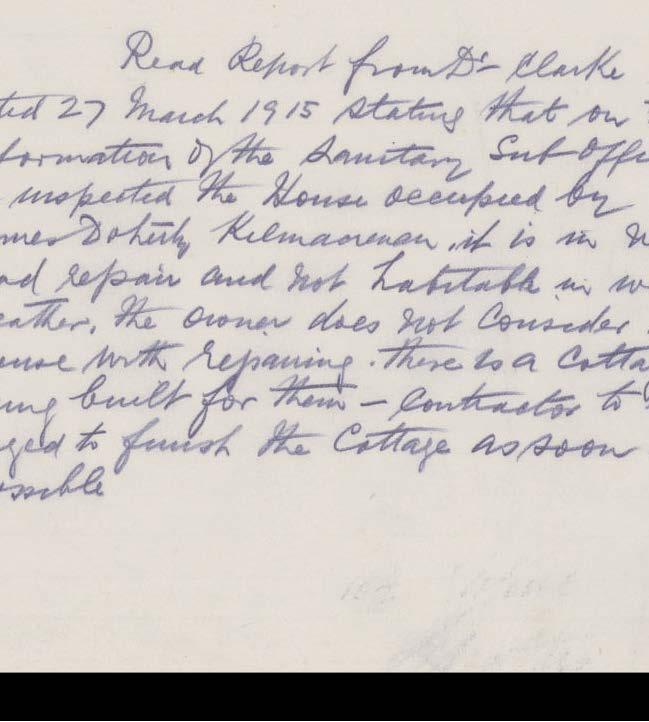 Read Report from Dr Clarke
ted 27 March 1915 stating that on
formation of the Sanitary Sub Offi
inspected the House occupied by
mes Doherty Kilmacrenan, it is in
ad repair and not habitable in w
eather. The owner does not Consider
ouse worth repairing. There is a Cotta
ing built for them - Contractor to
ged to finish the Cottage as soon
ossible